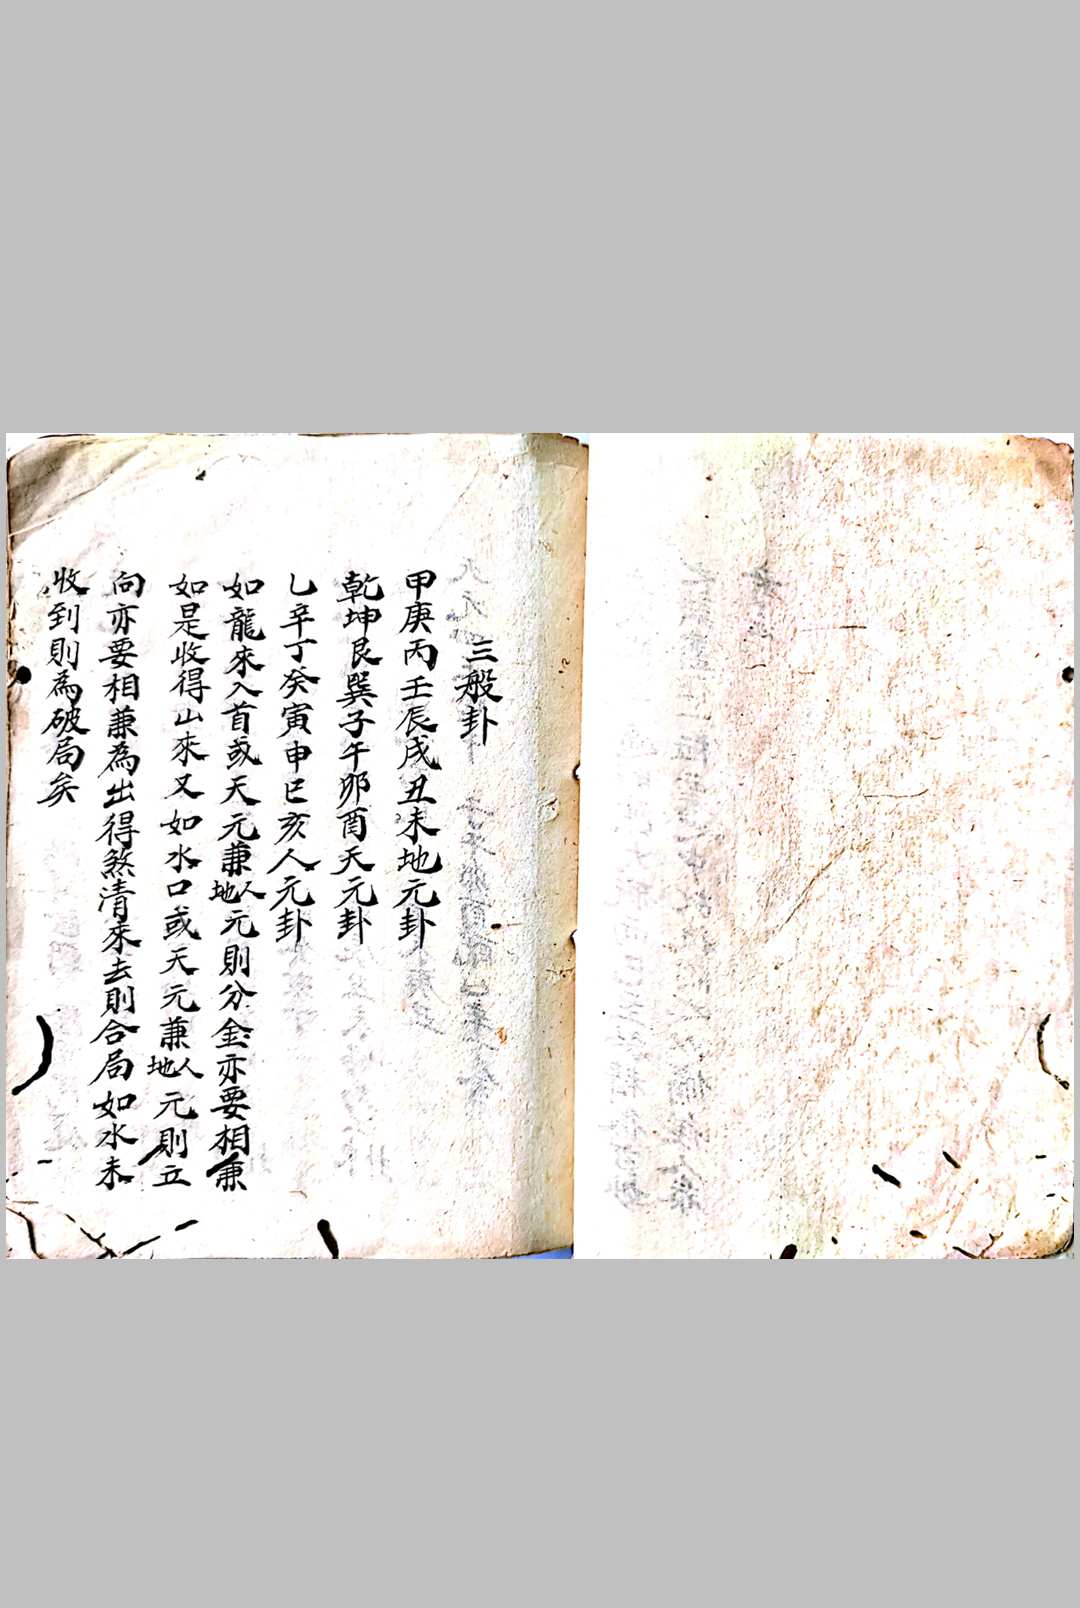 三般卦
甲庚丙壬辰戌丑未地元卦
乾坤艮巽子午卯酉天元卦
乙辛丁癸寅申巳亥人元卦
如龍來入首或天元兼人地元則分金亦要相兼
如是收得山來又如水口或天元兼人地元則立
向亦要相兼為出得煞清來去則合局如水未
收到則為破局矣